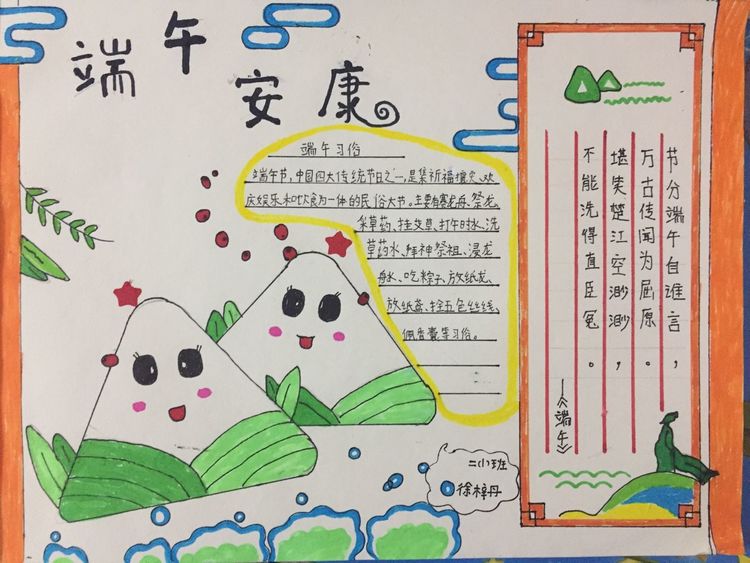 端午
安康
端午习俗
端午节,中国四大传统节日之一,是集祈福攘灾、欢
庆娱乐和饮食为一体的民俗大节。主要有赛龙舟、祭龙、
采草药、挂艾草、打午时水、洗
草药水、拜神祭祖、浸龙
舟水、吃粽子、放纸龙、
放纸鸢、拴五色丝线、
佩香囊等习俗。
节分端午自谁言,
万古传闻为屈原。
堪笑楚江空渺渺,
不能洗得直臣冤。
——《端午》
二(1)班
徐梓丹